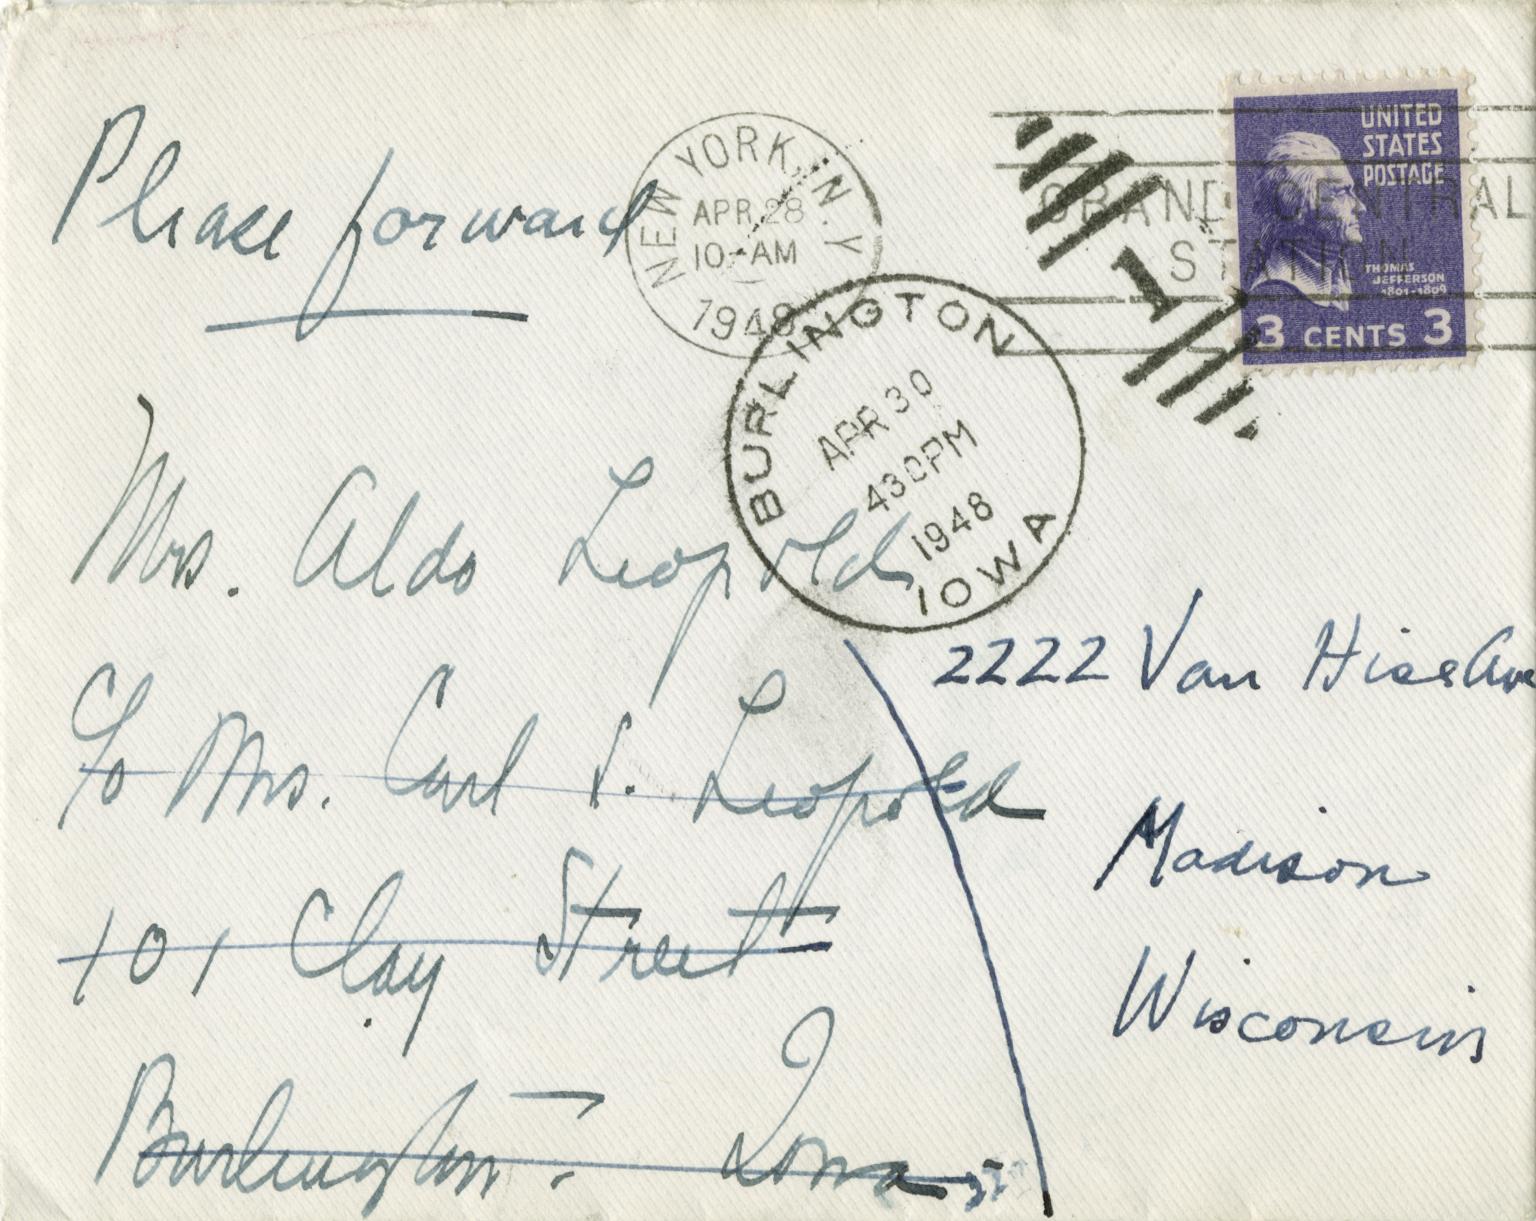 Please forward
NEW YORK, N.Y.
APR 28
10-AM
1948
GRAND CENTRAL
STATION
UNITED
STATES
POSTAGE
THOMAS
JEFFERSON
1801-1809
3 CENTS 3
1
BURLINGTON
APR 30
430PM
1948
IOWA
Mrs. Aldo Leopold
2222 Van Hise Ave
c/o Mrs. Carl S. Leopold
Madison
101 Clay Street
Wisconsin
Burlington. Iowa